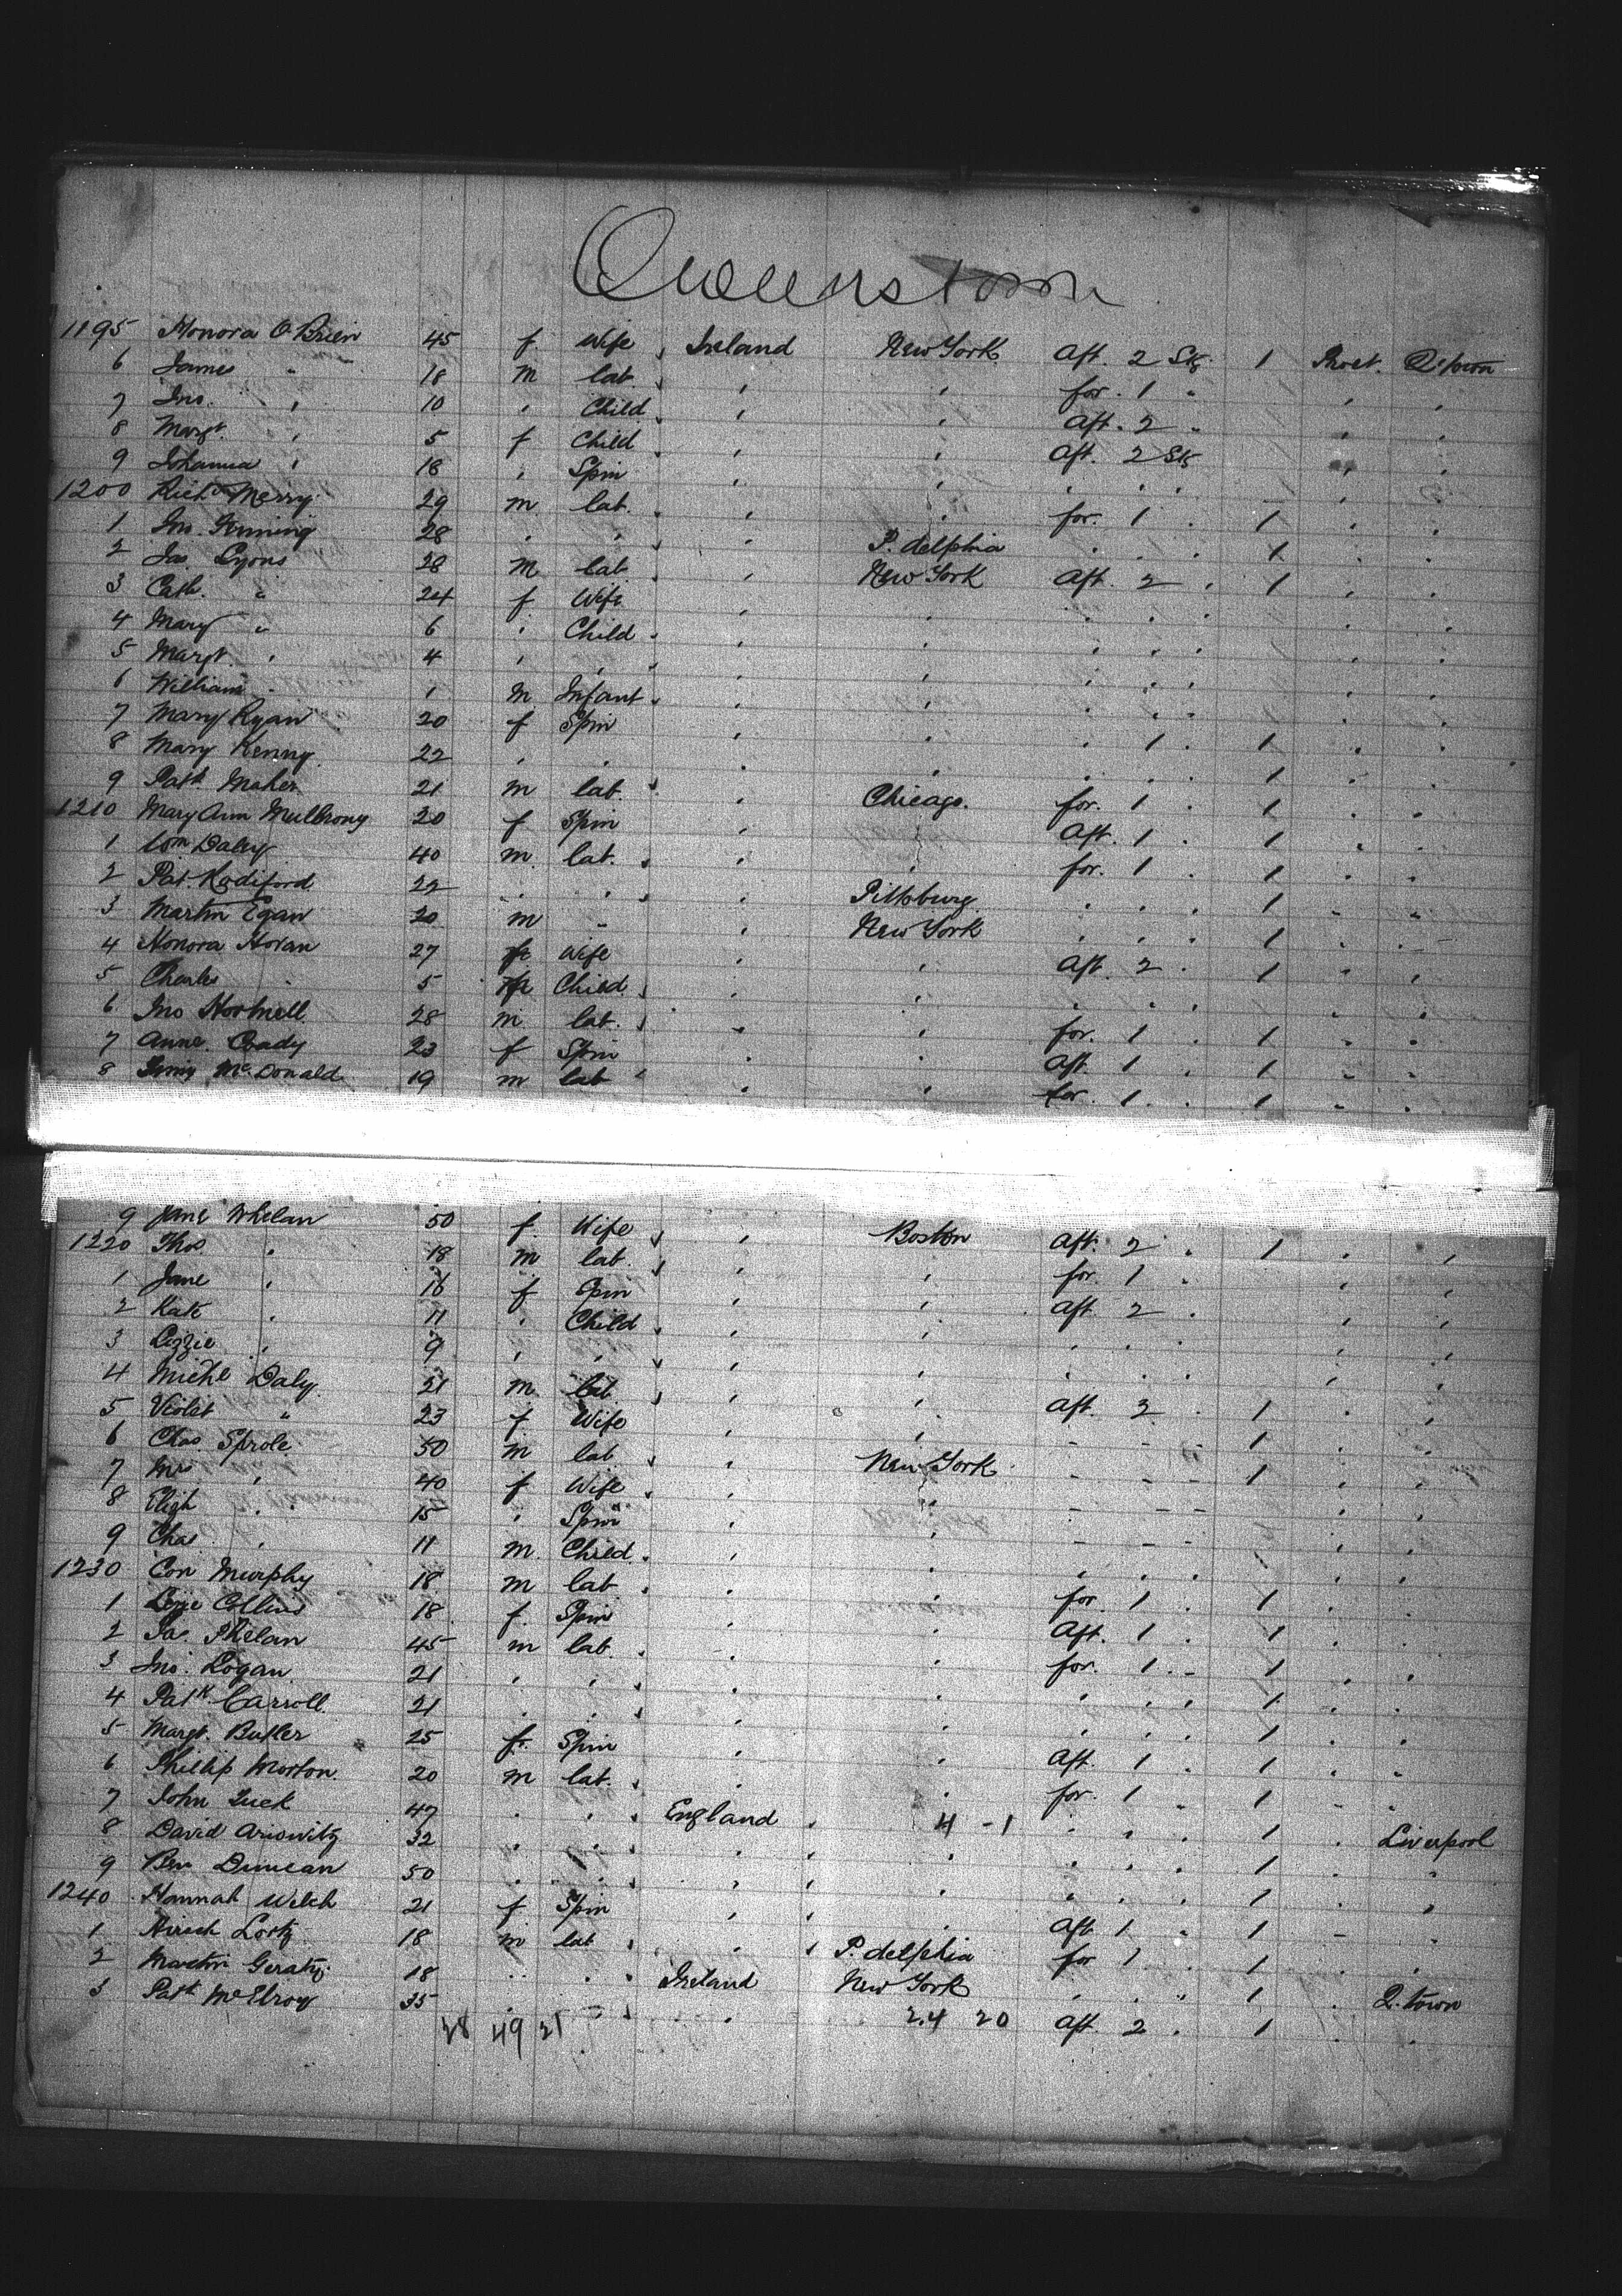 Queenstown
1195 Honora O'Brien 45 f. Wife Ireland New York Aft. 2 Stg 1 Q. town
6 James " 18 m lab. " " for. 1 " " "
7 Jno. " 10 " Child " " Aft. 2 " " "
8 Margt. " 5 f Child " " Aft. 2 Stg " "
9 Johanna " 18 " Spin " " " " " " "
1200 Richd Merry 29 m lab. " " for. 1 " 1 " "
1 Jno. 28 " " " P. delphia " " " 1 " "
2 Jas. Lyons 28 m lab. " New York Aft. 2 " 1 " "
3 Cath. " 24 f Wife " " " " " " "
4 Mary " 6 " Child " " " " " " "
5 Margt. " 4 " " " " " " " " "
6 William " 1 m Infant " " " " " " "
7 Mary Ryan 20 f Spin " " " 1 " 1 " "
8 Mary Kenny 22 " " " " " " " 1 " "
9 Patk. Maher 21 m lab. " Chicago. for. 1 " 1 " "
1210 Mary Ann 20 f Spin " " Aft. 1 " 1 " "
1 Wm Daly 40 m. lab. " " for. 1 " 1 " "
2 Pat. 22 " " " Pittsburg " " " 1 " "
3 Martin Egan 20 m " " New York " " " 1 " "
4 Honora Horan 27 f Wife " " Aft. 2 " 1 " "
5 Charles " 5 Child " " " " " " "
6 Jno 28 m lab. " " for. 1 " 1 " "
7 Anne 23 f Spin " " Aft. 1 " 1 " "
8 McDonald 19 m lab " " for. 1 " 1 " "
9 Jane Whelan 50 f. Wife " Boston Aft. 2 " 1 " "
1220 Thos " 18 m lab. " " for. 1 " " "
1 Jane " 16 f Spin " " Aft. 2 " " "
2 Kate " 11 " Child " " " " " " "
3 Lizzie " 9 " " " " " " " " "
4 Michl Daly 21 m lab " " Aft. 2 " 1 " "
5 Violet " 23 f Wife " " - - - 1 " "
6 Chas. Sprole 50 m lab " New York - - - 1 " "
7 Mrs " 40 f Wife " " - - - " "
8 Eligh " 15 " Spin " " - - - " "
9 Chas. " 11 m. Child " " " " " " "
1230 Con Murphy 18 m lab " " for. 1 " 1 " "
1 Collins 18 f. Spin " " Aft. 1 " 1 " "
2 Jas. Phelan 45 m lab. " " for. 1 " 1 " "
3 Jno. Logan 21 " " " " " " " 1 " "
4 Patk Carroll 21 " " " " " " " 1 " "
5 Margt. Butler 25 f. Spin " " Aft. 1 " 1 " "
6 Phillip Morton. 20 m lab. " " for. 1 " 1 " "
7 John 47 " " England 4 - 1 " " " 1 " Liverpool
8 David 32 " " " " " " " 1 " "
9 Ben Duncan 50 " " " " " " " 1 " "
1240 Hannah Welch 21 f Spin " " Aft 1 " 1 - "
1 Hirsch 18 m lab " P. delphia for 1 " 1 " "
2 Martin 18 " " Ireland New York " " " 1 " Q. town
3 Patk McElroy 35 " " " 24 20 Aft. 2 " 1 " "
28 49 21